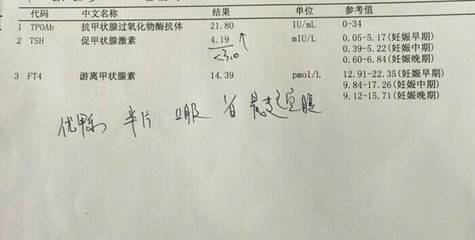 代码 中文名称 结果 单位 参考值
1 TPOAb 抗甲状腺过氧化物酶抗体 21.80 IU/mL 0-34
2 TSH 促甲状腺激素 4.19 ↑ mIU/L 0.05-5.17(妊娠早期)
<3.0 0.39-5.22(妊娠中期)
0.60-6.84(妊娠晚期)
3 FT4 游离甲状腺素 14.39 pmol/L 12.91-22.35(妊娠早期)
9.84-17.26(妊娠中期)
9.12-15.71(妊娠晚期)
优甲乐 半片 口服 晨起空腹